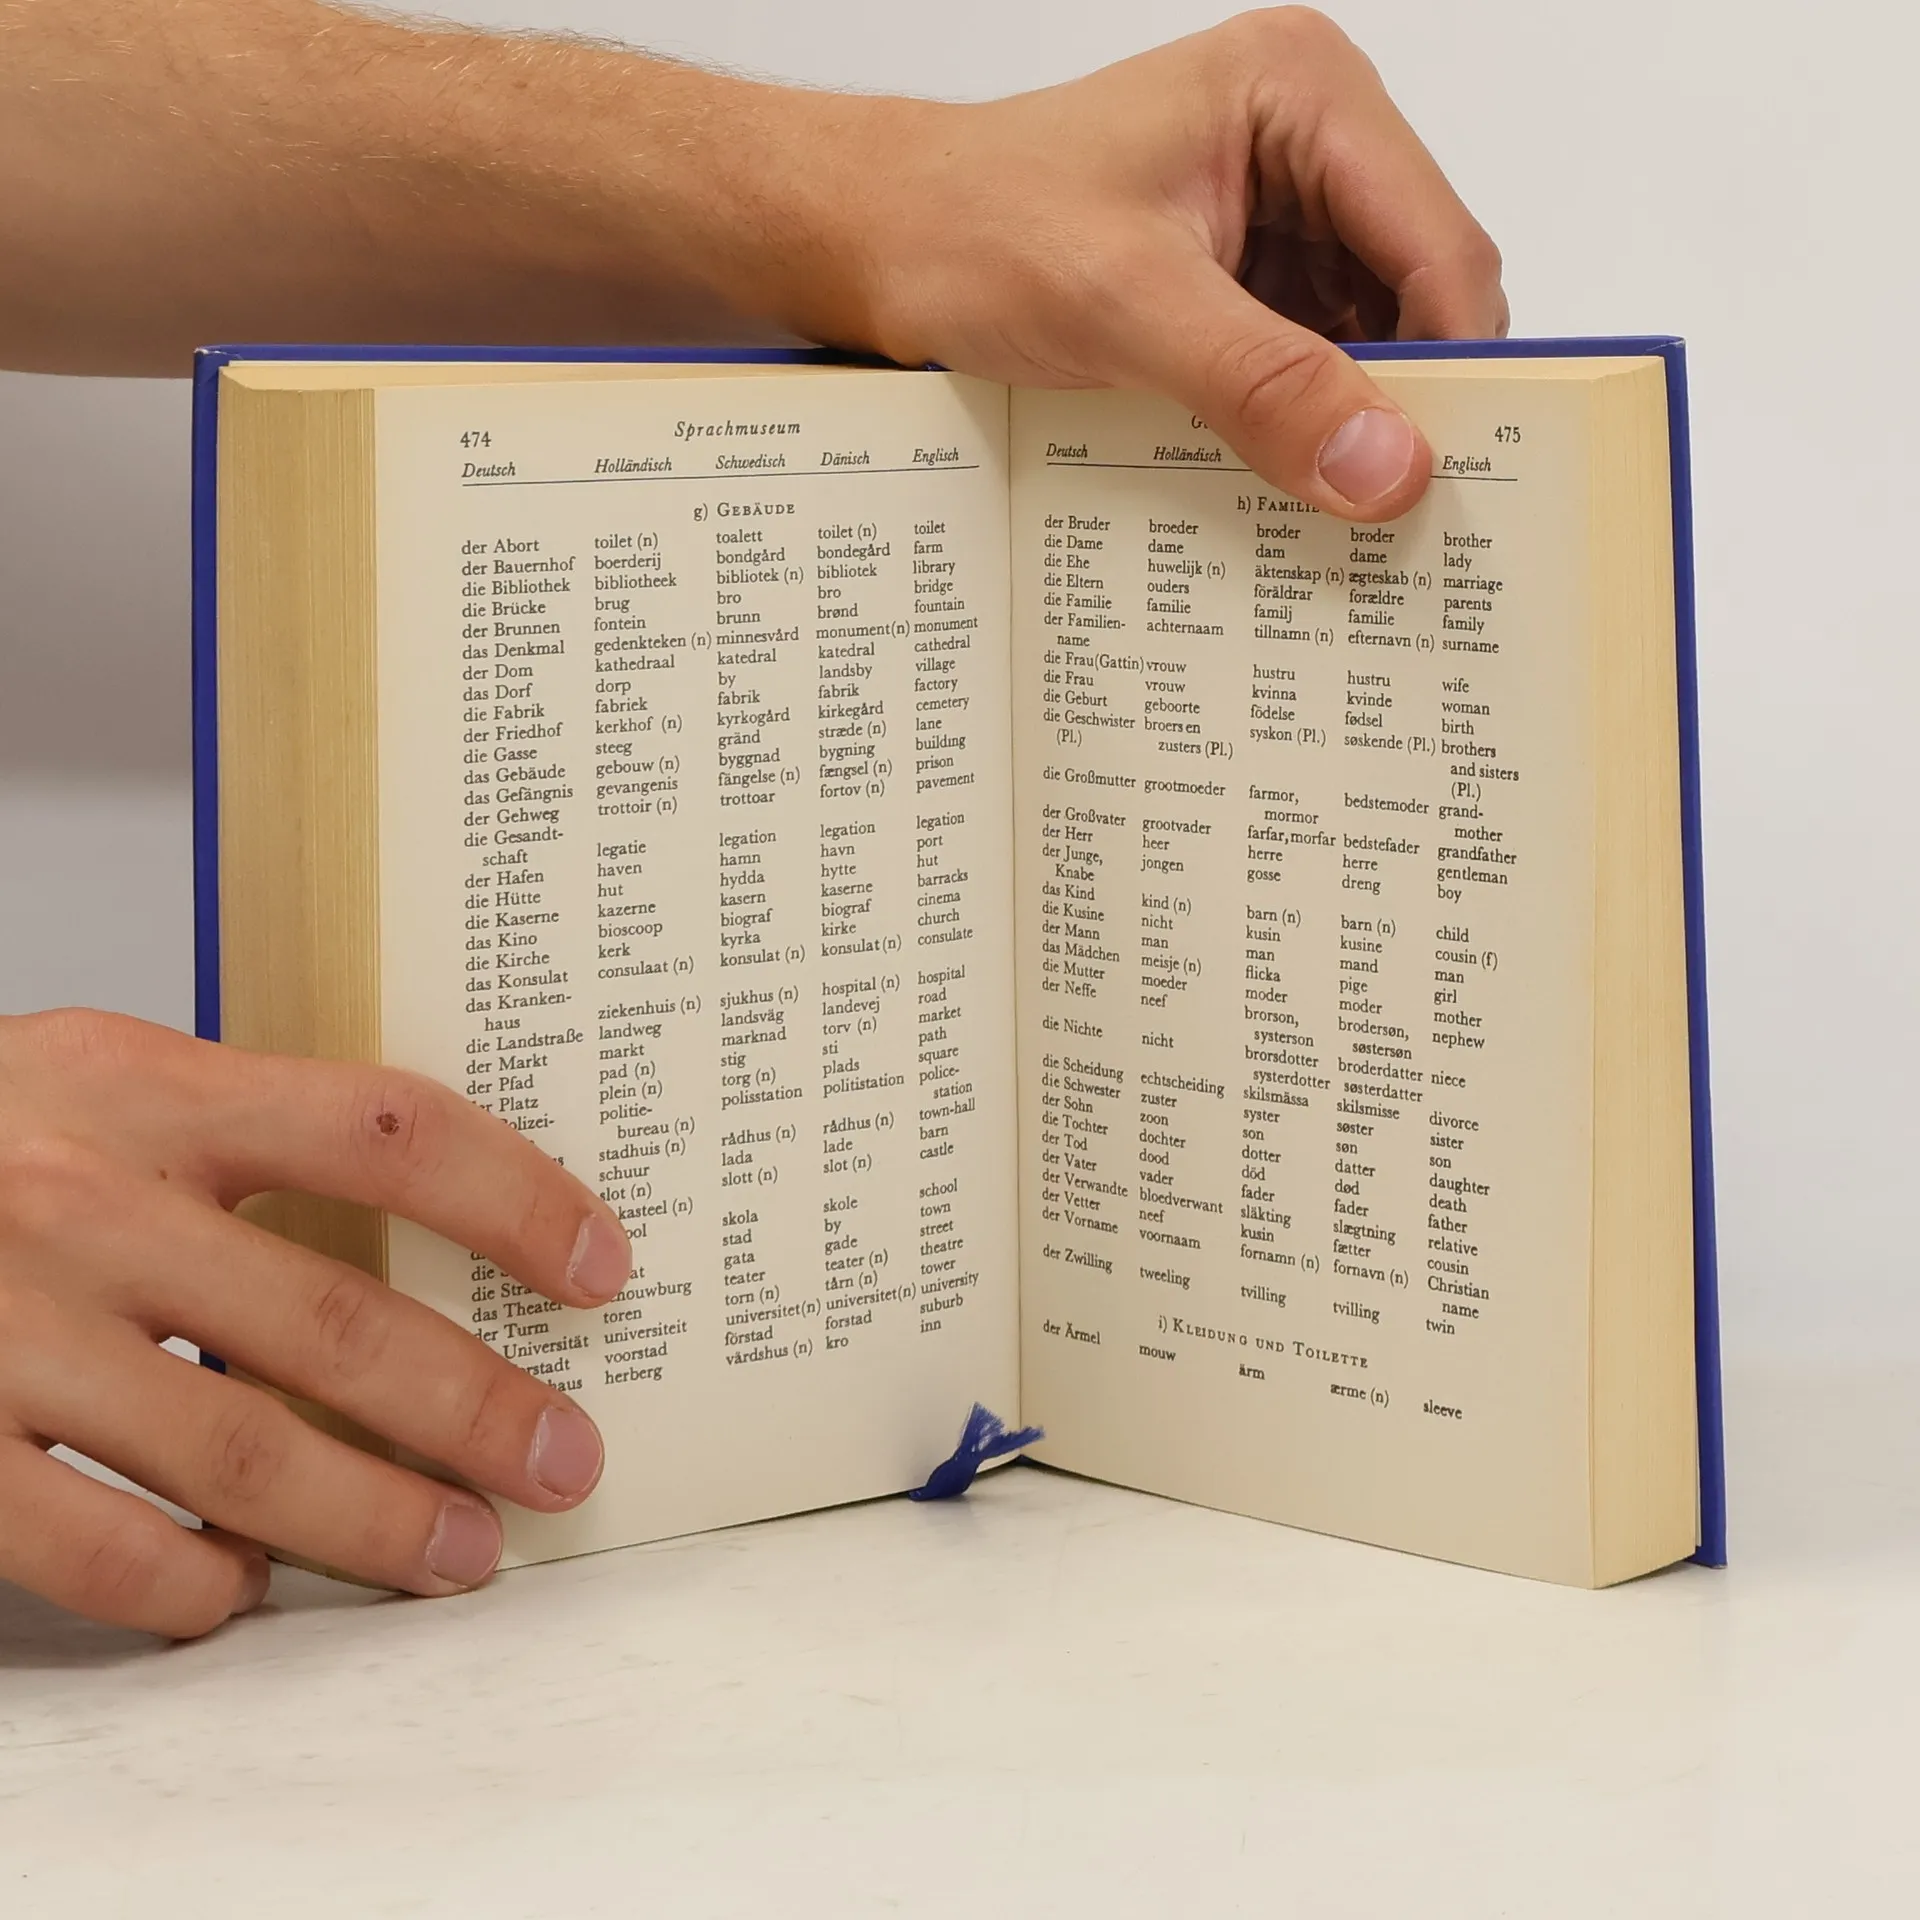 474 Sprachmuseum
Deutsch Holländisch Schwedisch Dänisch Englisch
g) GEBÄUDE
der Abort toilet (n) toalett toilet (n) toilet
der Bauernhof boerderij bondgård bondegård farm
die Bibliothek bibliotheek bibliotek (n) bibliotek library
die Brücke brug bro bro bridge
der Brunnen fontein brunn brønd fountain
das Denkmal gedenkteken (n) minnesvård monument(n) monument
der Dom kathedraal katedral katedral cathedral
das Dorf dorp by landsby village
die Fabrik fabriek fabrik fabrik factory
der Friedhof kerkhof (n) kyrkogård kirkegård cemetery
die Gasse steeg gränd stræde (n) lane
das Gebäude gebouw (n) byggnad bygning building
das Gefängnis gevangenis fängelse (n) fængsel (n) prison
der Gehweg trottoir (n) trottoar fortov (n) pavement
die Gesandt-
schaft legatie legation legation legation
der Hafen haven hamn havn port
die Hütte hut hydda hytte hut
die Kaserne kazerne kasern kaserne barracks
das Kino bioscoop biograf biograf cinema
die Kirche kerk kyrka kirke church
das Konsulat consulaat (n) konsulat (n) konsulat (n) consulate
das Kranken-
haus ziekenhuis (n) sjukhus (n) hospital (n) hospital
die Landstraße landweg landsväg landevej road
der Markt markt marknad torv (n) market
der Pfad pad (n) stig sti path
Platz plein (n) torg (n) plads square
politie- polisstation politistation police-
bureau (n) station
stadhuis (n) rådhus (n) rådhus (n) town-hall
schuur lada lade barn
slot (n) slott (n) slot (n) castle
kasteel (n)
skola skole school
stad by town
gata gade street
das Theater teater teater (n) theatre
der Turm toren torn (n) tårn (n) tower
Universität universiteit universitet(n) universitet(n) university
voorstad förstad forstad suburb
herberg värdshus (n) kro inn
475
Deutsch Holländisch Englisch
h) FAMILIE
der Bruder broeder broder broder brother
die Dame dame dam dame lady
die Ehe huwelijk (n) äktenskap (n) ægteskab (n) marriage
die Eltern ouders föräldrar forældre parents
die Familie familie familj familie family
der Familien- achternaam tillnamn (n) efternavn (n) surname
name
die Frau(Gattin) vrouw hustru hustru wife
die Frau vrouw kvinna kvinde woman
die Geburt geboorte födelse fødsel birth
die Geschwister broers en syskon (Pl.) søskende (Pl.) brothers
(Pl.) zusters (Pl.) and sisters
(Pl.)
die Großmutter grootmoeder farmor, bedstemoder grand-
mormor mother
der Großvater grootvader farfar, morfar bedstefader grandfather
der Herr heer herre herre gentleman
der Junge, jongen gosse dreng boy
Knabe
das Kind kind (n) barn (n) barn (n) child
die Kusine nicht kusin kusine cousin (f)
der Mann man man mand man
das Mädchen meisje (n) flicka pige girl
die Mutter moeder moder moder mother
der Neffe neef brorson, brodersøn, nephew
systerson søstersøn
die Nichte nicht brorsdotter broderdatter niece
systerdotter søsterdatter
die Scheidung echtscheiding skilsmässa skilsmisse divorce
die Schwester zuster syster søster sister
der Sohn zoon son søn son
die Tochter dochter dotter datter daughter
der Tod dood död død death
der Vater vader fader fader father
der Verwandte bloedverwant släkting slægtning relative
der Vetter neef kusin fætter cousin
der Vorname voornaam fornamn (n) fornavn (n) Christian
name
der Zwilling tweeling tvilling tvilling twin
i) KLEIDUNG UND TOILETTE
der Ärmel mouw ärm ærme (n) sleeve